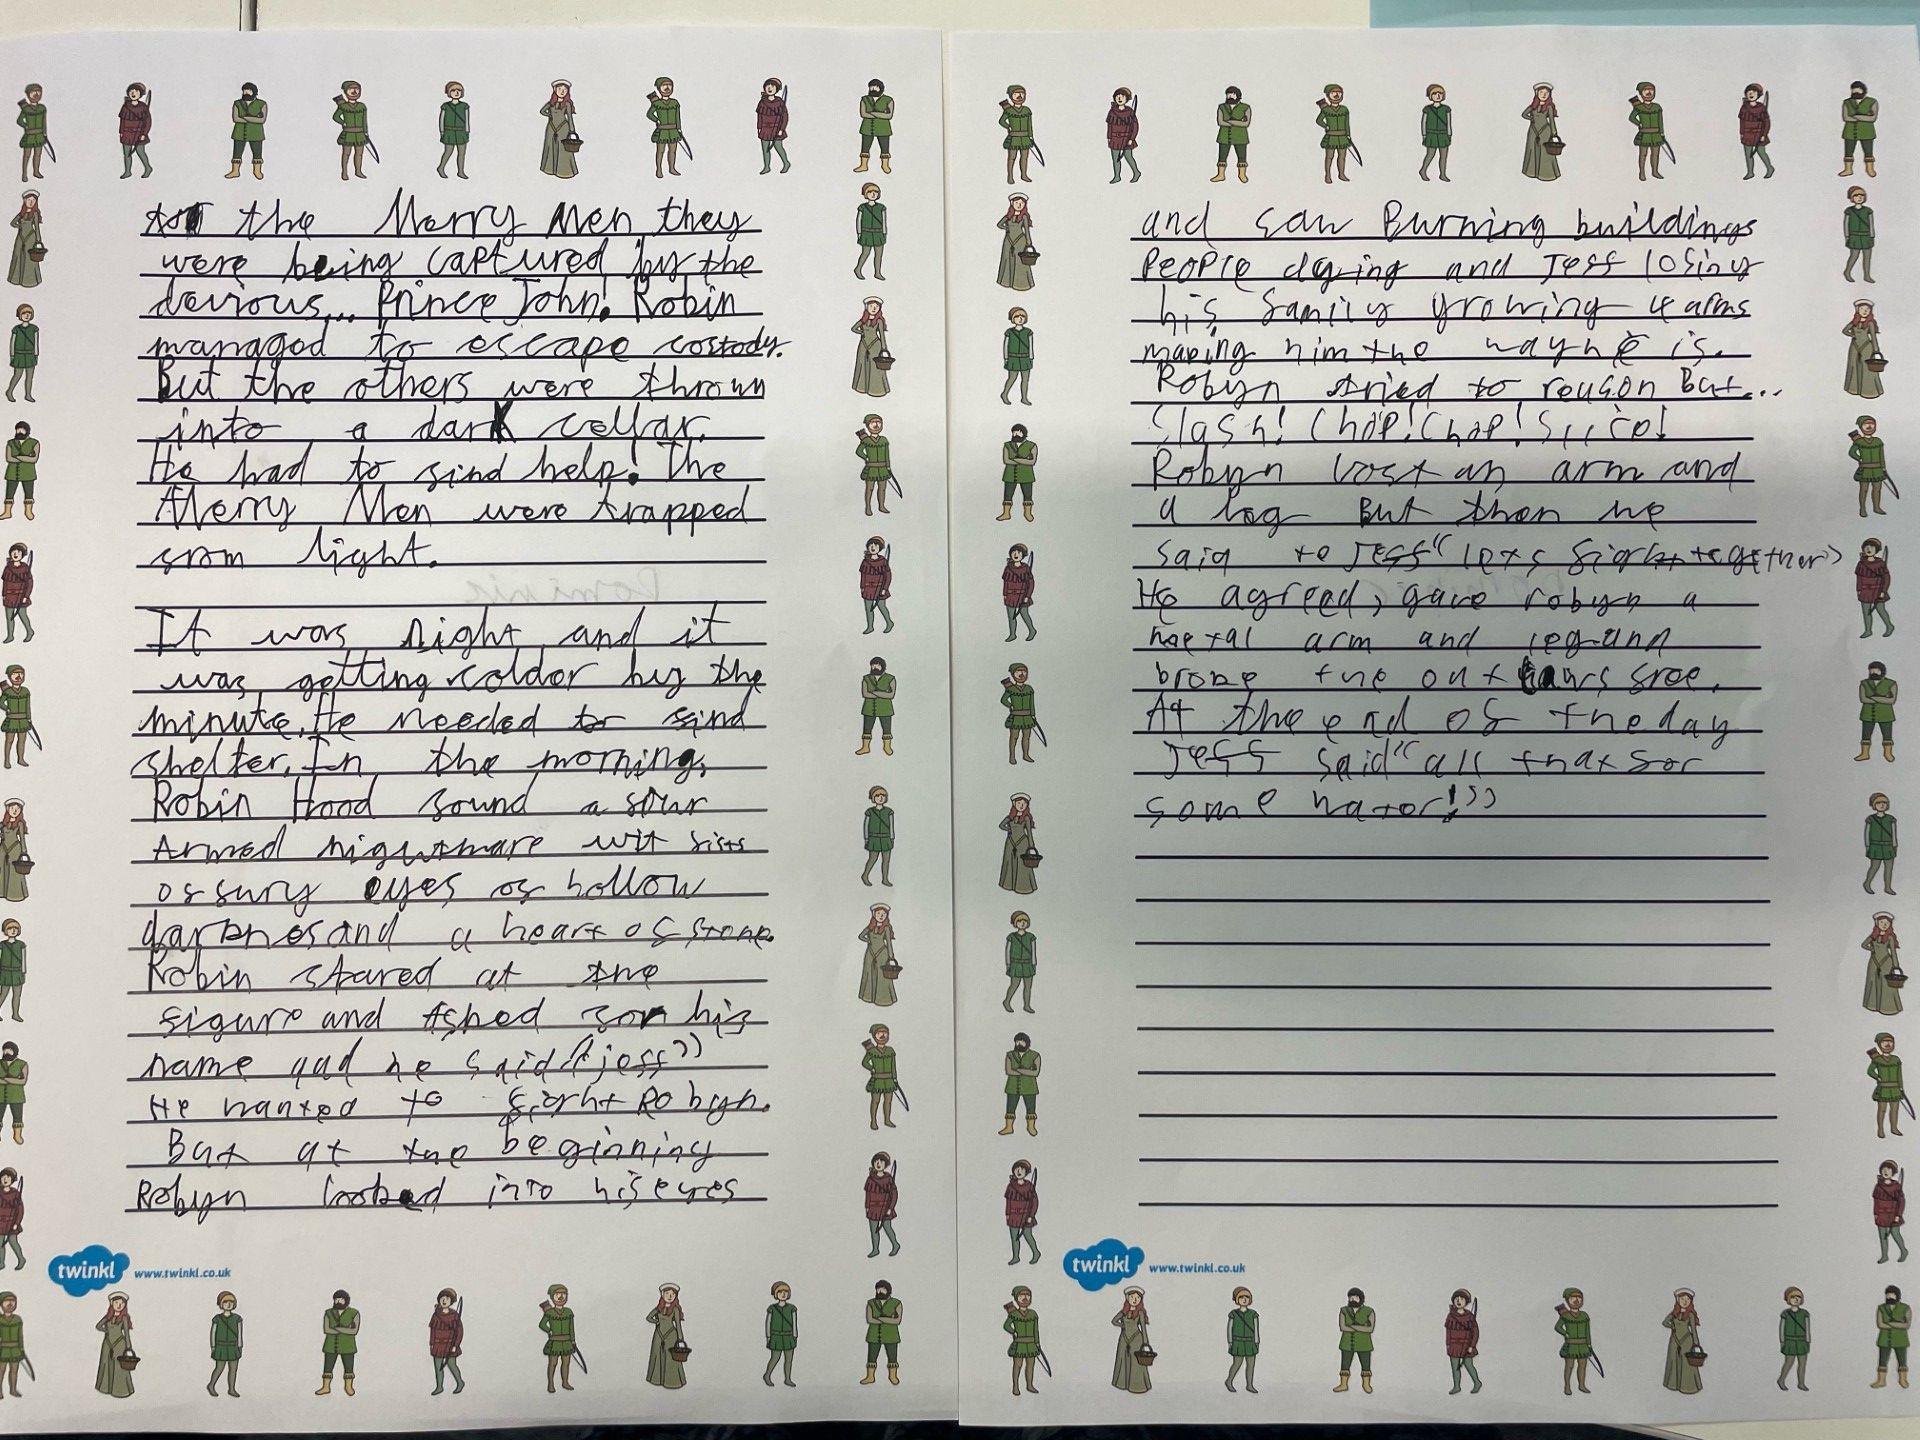 the Merry Men they
were being captured by the
devious... Prince John! Robin
managed to escape costody.
But the others were thrown
into a dark cellar.
He had to find help! The
Merry Men were trapped
from light.
It was night and it
was getting colder by the
minute. He needed to find
shelter. In the morning,
Robin Hood found a four
Armed nightmare wit fists
of fury eyes of hollow
darknes and a heart of stone.
Robin stared at the
figure and Asked for his
name and he said "jeff"
He wanted to fight Robyn.
But at the beginning
Robyn looked into his eyes
twinkl www.twinkl.co.uk
and saw Burning buildings
People dying and Jeff losing
his family growing 4 arms
making him the way he is.
Robyn tried to reason But...
Slash! Chop! Chop! Slice!
Robyn lost an arm and
a leg But then he
said to Jeff "lets fight together"
He agreed, gave robyn a
metal arm and leg and
broke the outlaws free.
At the end of the day
Jeff said "all that for
some water!"
twinkl www.twinkl.co.uk